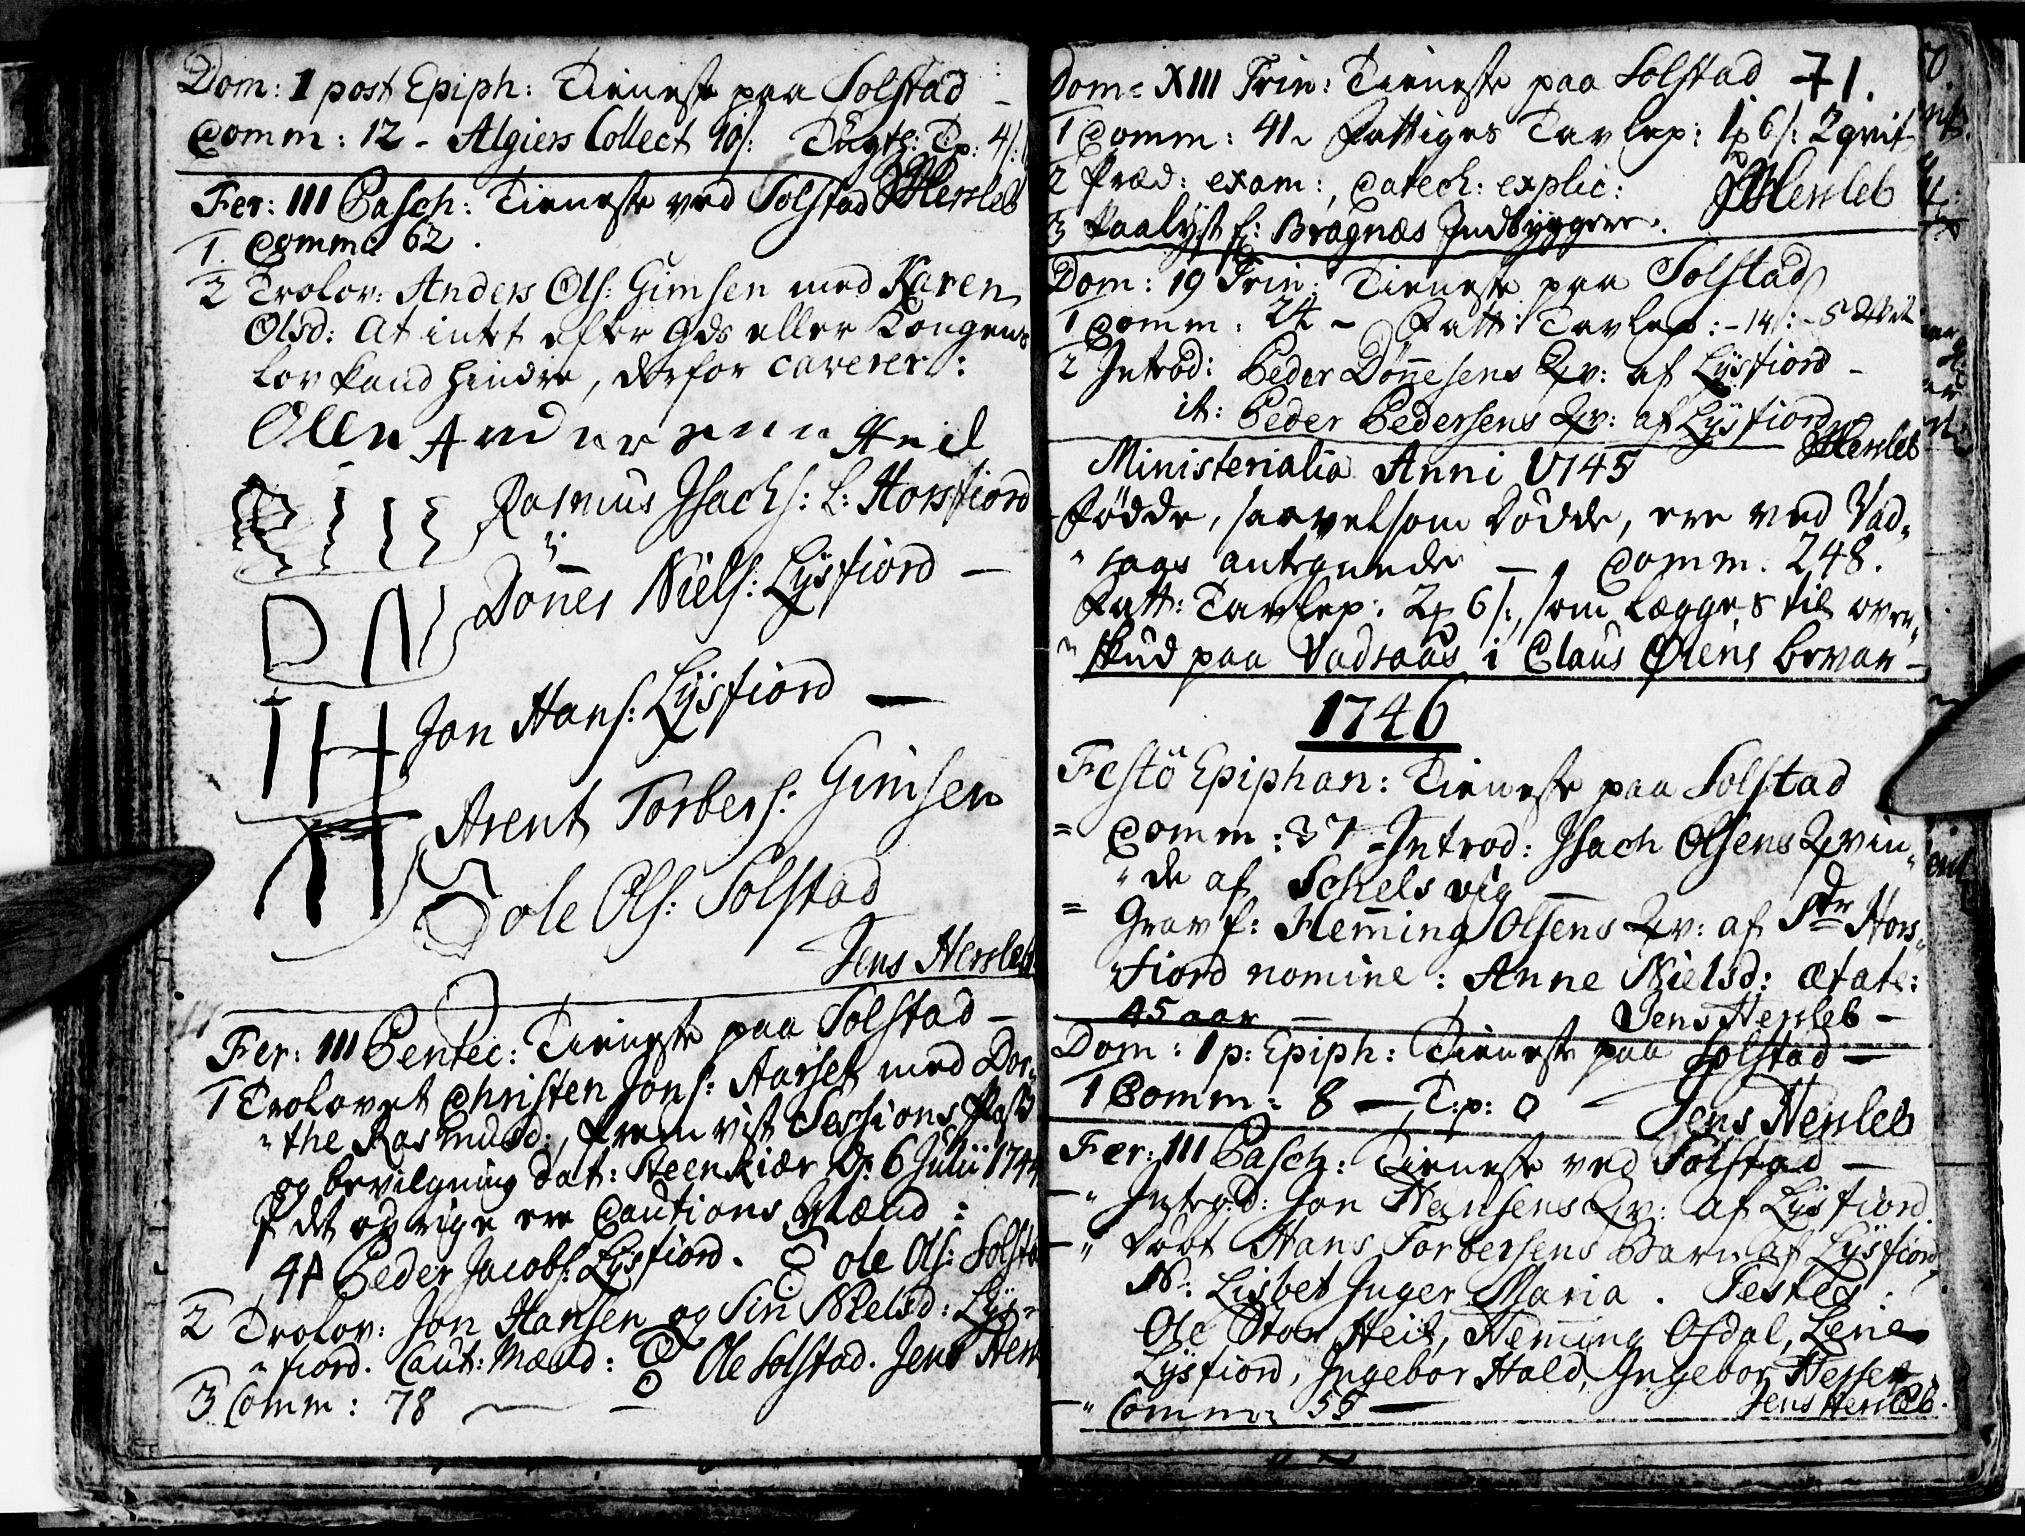 Dom: 1 post Epiph: Tieneste paa Solstad -
Comm: 12 - Algiers Collect 40/: Tugth: Tp: 4/:
JHersleb
Fer: III Pasch: Tieneste ved Solstad
1. Comm: 62.
2 Trolov: Anders Ols: Gimsen med Karen
Olsd: At intet efter Gds eller Kongens
Lov kand hindre, derfor caverer:
Olle Andersenn Heil
Rasmus Jsachs: L: Horsfiord
Dönnes Niels: Lysfiord -
D N
Jon Hans: Lysfiord -
I H H
Arent Torbers: Gimsen
ole Ols: Solstad
Jens Hersleb
Fer: III Pentec: Tieneste paa Solstad -
1 Trolovet Christen Jons: Aarset med Dor-
"the Rasmusd:, fremvist Sessions Pass
og bevilgning dat: Steenkiær d. 6 Julii 1744
f det øvrige ere Cautions Mænd:
Peder Jacobs: Lysfiord. ole Ols: Solsta
2 Trolov: Jon Hansen og Siri Nielsd: Lys-
"fiord. Caut: Mænd: Ole Solstad. Jens Hers
3 Comm: 78 -
Dom: XIII Trin: Tieneste paa Solstad 71.
1 Comm: 41 - Fattiges Tavlep: 6/: 2 qvit
2 Præd: exam:, Catech: explic: JHersleb
3 Paalyst f: Bragnæs Indbyggere.
Dom: 19 Trin: Tieneste paa Solstad
1 Comm: 24 - Fatt: Tavlep: - 14/: -
2 Introd: Peder Dönnesens Qv: af Lysfiord -
it: Peder Pedersens Qv: af Lysfiord
JHersleb
Ministerialia Anni 1745
Födde, saavelsom Dödde, ere ved Vad-
"saas antegnede - Comm. 248.
Fatt: Tavlep: 2 6/:, som lægges til over-
"skud paa Vadsaas i Claus Qiens bevar -
1746
Festö Epiphan: Tieneste paa Solstad
= Comm: 37 - Introd: Jsach Olsens Qvin-
"de af Schelsvig -
= Grav f: Hemming Olsens Qv: af Str Hors-
"fiord nomine: Anne Nielsd: ætate:
45 aar - Jens Hersleb -
Dom: 1 p: Epiph: Tieneste paa Solstad -
1 Comm: 8 - T:p: 0 - Jens Hersleb
Fer: III Pasch: Tieneste ved Solstad -
- " Introd: Jon Hansens Qv: af Lysfiord.
- " Döbt Hans Torbersens Barn af Lysfiord,
N: Lisbet Inger Maria. Testes:
Ole Stoer Heil, Hemming Ofdal, Lene
Lysfiord, Ingebor Hald, Ingebor Hessen
- " Comm: 55 - Jens Hersleb.